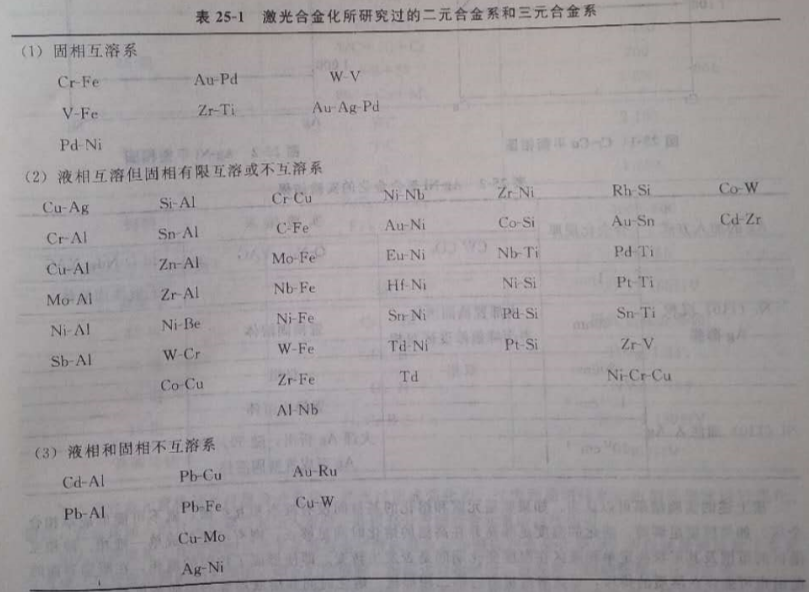 表 25-1 激光合金化所研究过的二元合金系和三元合金系
(1) 固相互溶系
Cr-Fe Au-Pd W-V
V-Fe Zr-Ti Au-Ag-Pd
Pd-Ni
(2) 液相互溶但固相有限互溶或不互溶系
Cu-Ag Si-Al Cr-Cu Ni-Nb Zr-Ni Rh-Si Co-W
Cr-Al Sn-Al C-Fe Au-Ni Co-Si Au-Sn Cd-Zr
Cu-Al Zn-Al Mo-Fe Eu-Ni Nb-Ti Pd-Ti
Mo-Al Zr-Al Nb-Fe Hf-Ni Ni-Si Pt-Ti
Ni-Al Ni-Be Ni-Fe Sn-Ni Pd-Si Sn-Ti
Sb-Al W-Cr W-Fe Td-Ni Pt-Si Zr-V
Co-Cu Zr-Fe Td Ni-Cr-Cu
Al-Nb
(3) 液相和固相不互溶系
Cd-Al Pb-Cu Au-Ru
Pb-Al Pb-Fe Cu-W
Cu-Mo
Ag-Ni